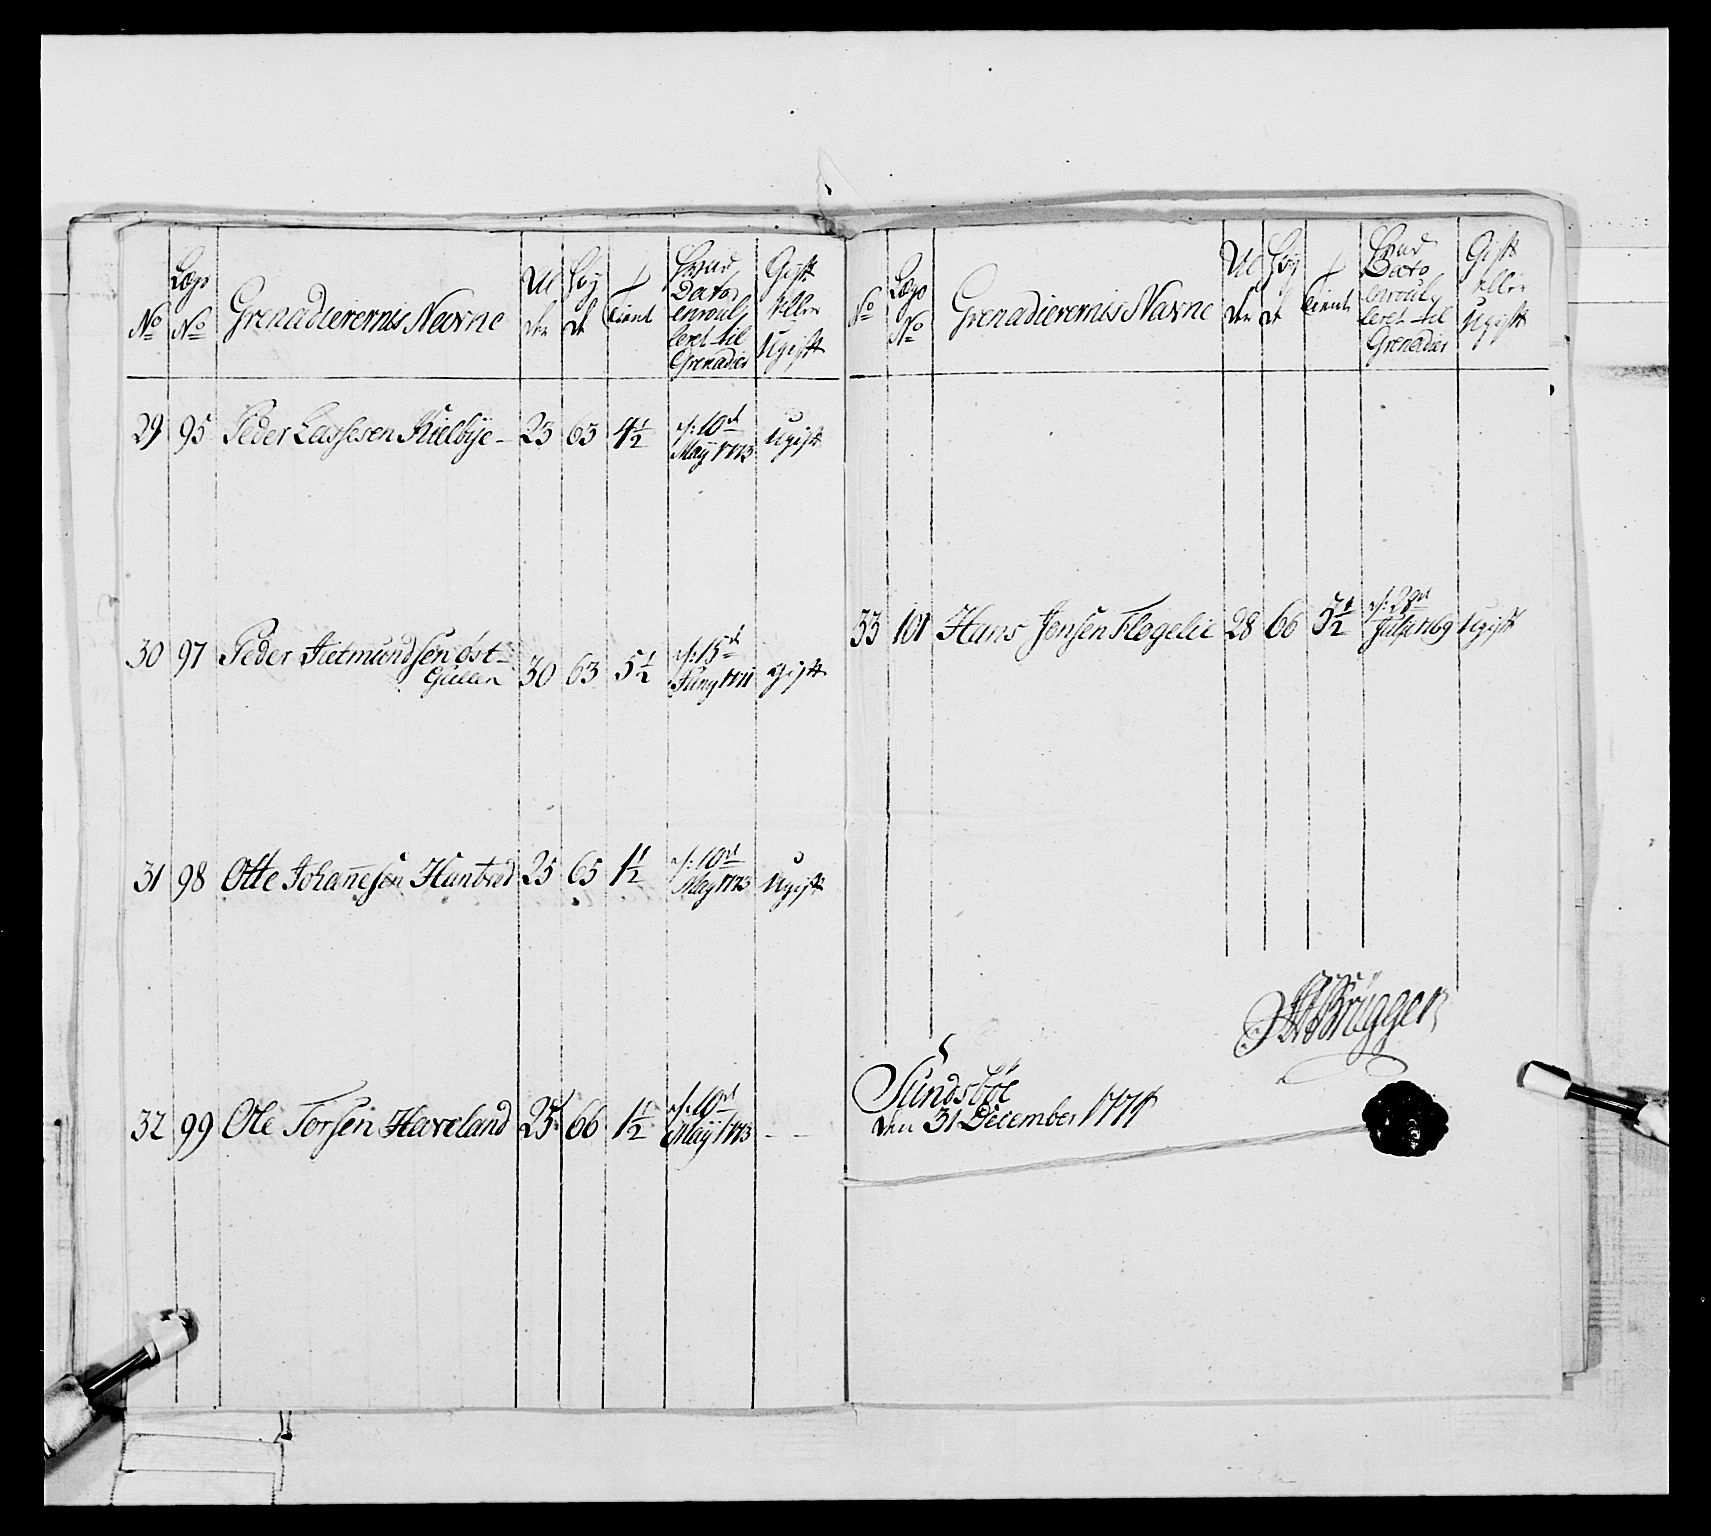 No Lægs No Grenadierernis Navne Al der Høy de Tient Hvad Dato enroulleret til Grenadier Gift eller Ugift
29 95 Peder Lassesen Kielbye 23 63 4½ d: 10d Maÿ 1773 Ugift
30 97 Peder Aetmundsen Øst- Gullen 30 63 5½ d: 15d Junÿ 1771 gift
31 98 Otte Johannesen Hantved 25 65 1½ d: 10d Maÿ 1773 Ugift
32 99 Ole Torsen Haveland 25 66 1½ d: 10d Maÿ 1773 — —
No Lægs No Grenadierernis Navne Al der Høy de Tient Hvad Dato enroulleret til Grenadier Gift eller Ugift
33 101 Hans Jensen Flogelie 28 66 5½ 1769 Ugift
Brüggen
Sundsbøe
den 31 December 1774